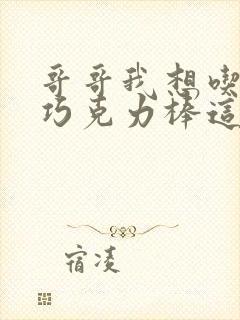 哥哥我想喫
巧克力棒這
宿凌